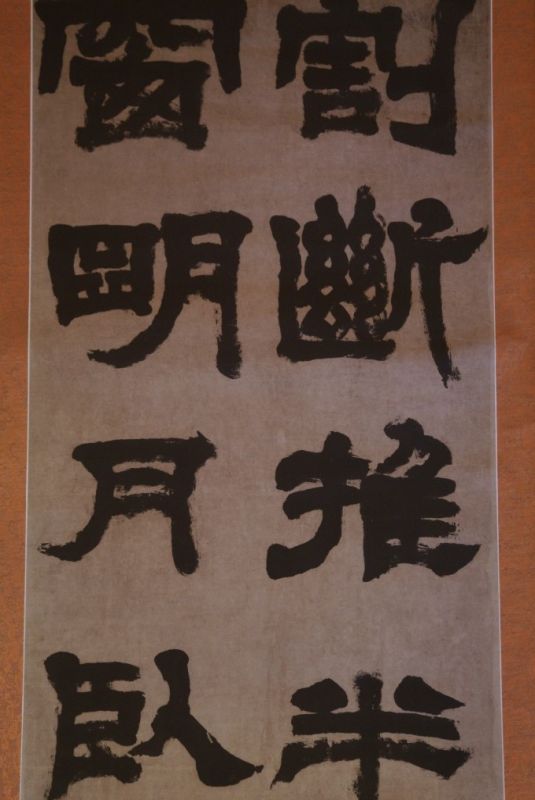 割斷推半
窗明月臥